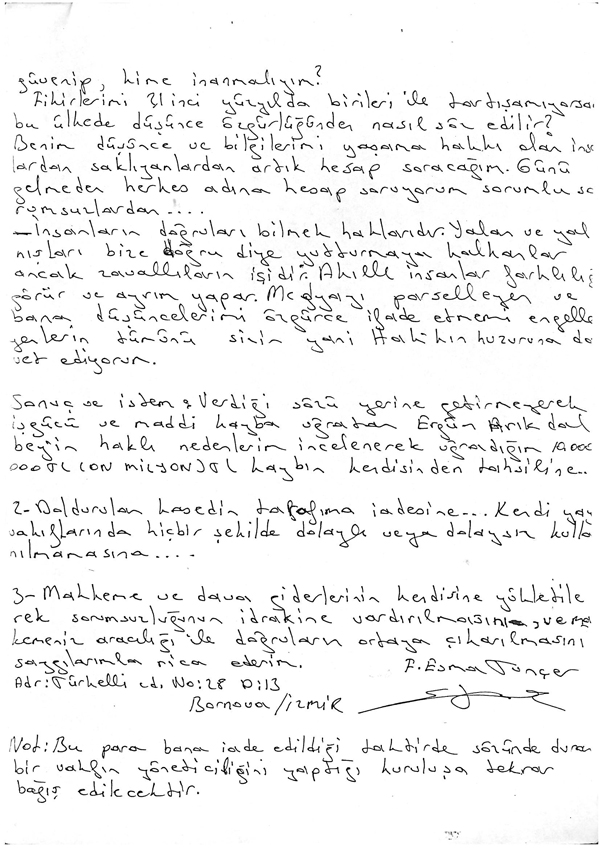 güvenip, kime inanmalıyım?
Fikirlerimi 21 inci yüzyılda birileri ile tartışamıyorsa
bu ülkede düşünce özgürlüğünden nasıl söz edilir?
Benim düşünce ve bilgilerimi yaşama hakkı olan ins
lardan saklıyanlardan artık hesap soracağım. Günü
gelmeden herkes adına hesap soruyorum sorumlu so
rumsuzlardan....
-İnsanların doğruları bilmek haklarıdır. Yalan ve yal
nışları bize doğru diye yutturmaya kalkanlar
ancak zavallıların işidir. Akıllı insanlar farklılığ
görür ve ayrım yapar. Medyayı parselleyen ve
bana düşüncelerimi özgürce ifade etmemi engelle
yenlerin tümünü sizin yani Hakkın huzuruna da
vet ediyorum.
Sonuç ve istem: Verdiği sözü yerine getirmeyerek
işgücü ve maddi kayba uğratan Ergün Arıkdal
bey'in haklı nedenlerim incelenerek uğradığım 10.000
000 TL (ON MİLYON) TL kaybın kendisinden tahsiline..
2- Doldurulan kasedin tarafıma iadesine... Kendi yay
vakıflarında hiçbir şekilde dolaylı veya dolaysız kulla
nılmamasına....
3- Mahkeme ve dava giderlerinin kendisine yükletile
rek sorumsuzluğunun idrakine vardırılmasına, ve ma
kemeniz aracılığı ile doğruların ortaya çıkarılmasını
saygılarımla rica ederim.
F. Esma Tunçer
Adr: Türkelli cd. No: 28 D: 13
Bornova / İZMİR
Not: Bu para bana iade edildiği taktirde sözünde duran
bir vakfın yöneticiliğini yaptığı kuruluşa tekrar
bağış edilecektir.